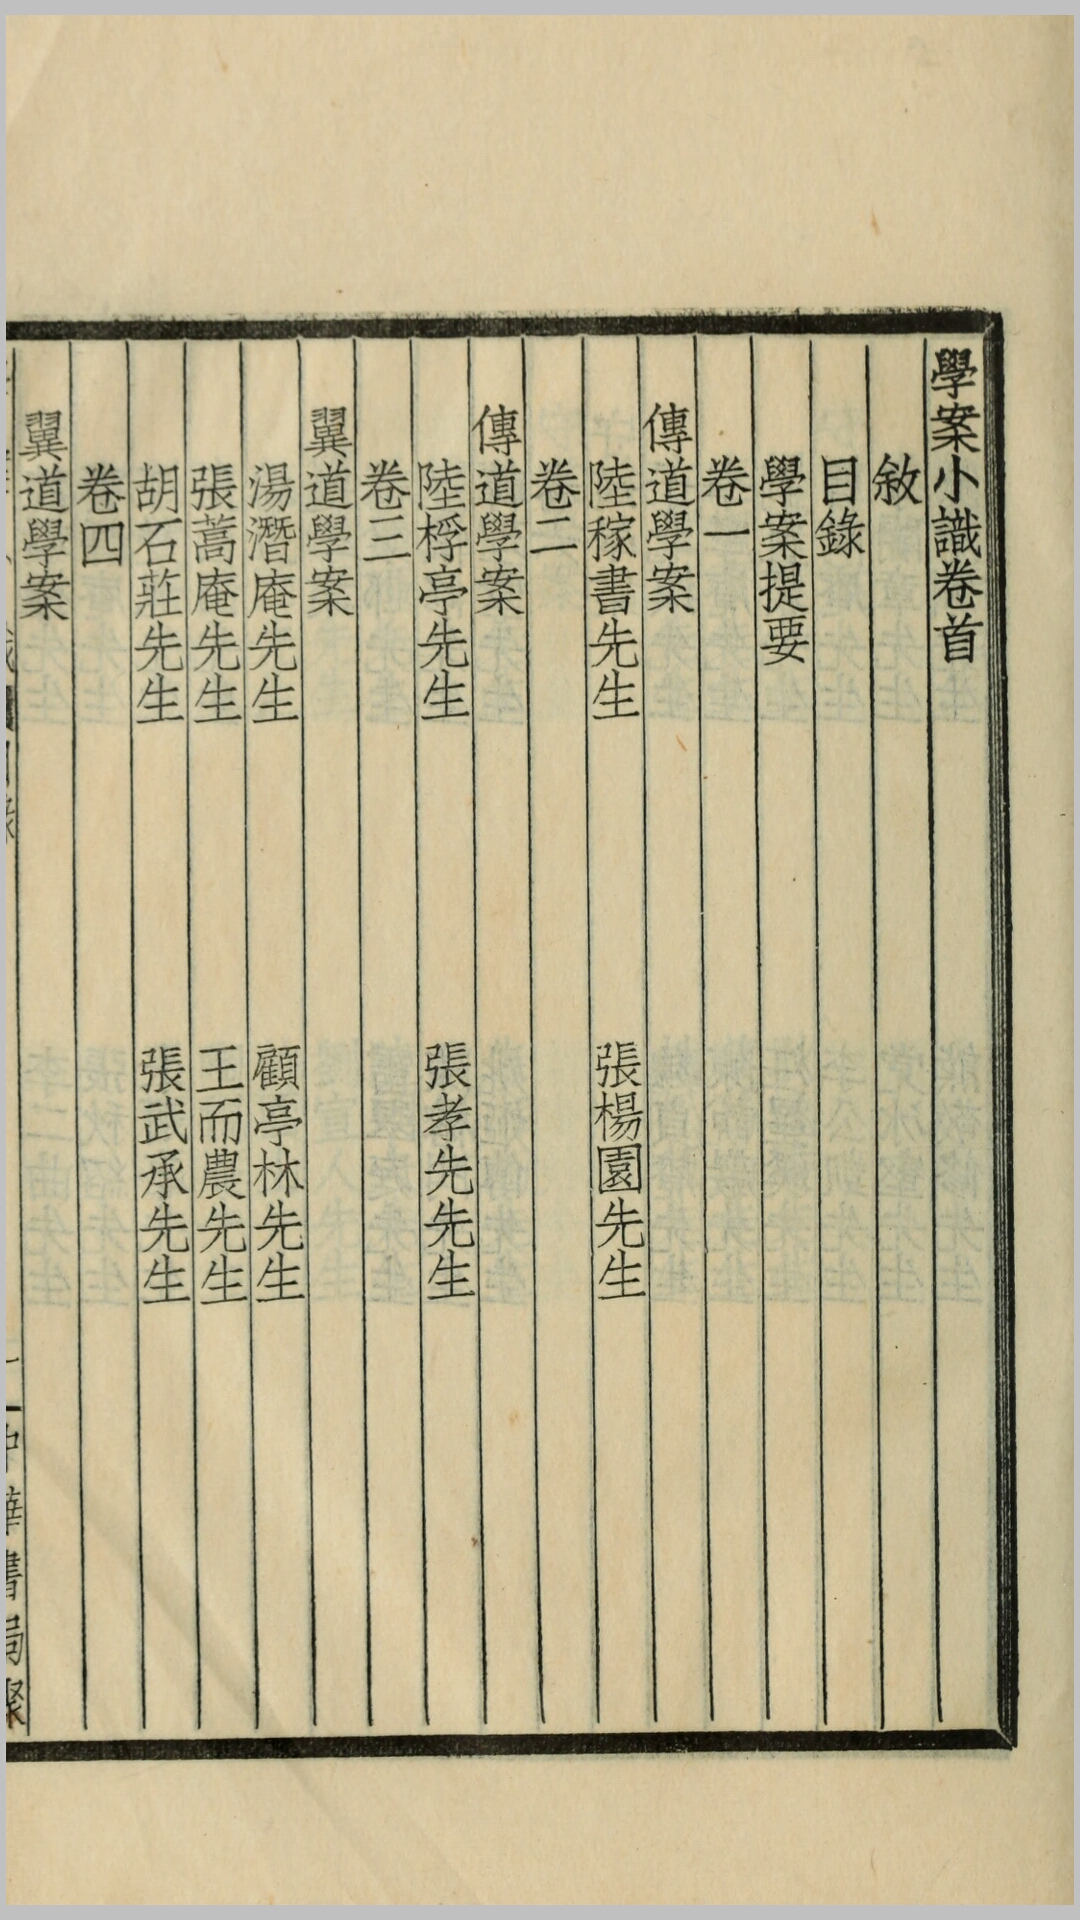 學案小識卷首
敘
目錄
學案提要
卷一
傳道學案
陸稼書先生　張楊園先生
卷二
傳道學案
陸桴亭先生　張孝先先生
卷三
翼道學案
湯潛庵先生　顧亭林先生
張蒿庵先生　王而農先生
胡石莊先生　張武承先生
卷四
翼道學案
中華書局聚